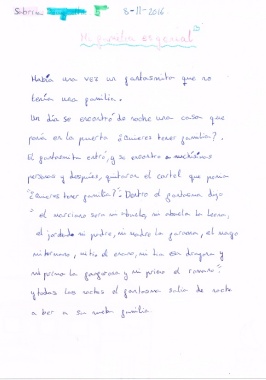 Sabrina 8-11-2016
Mi familia especial
Había una vez un fantasmita que no
tenía una familia.
Un día se encontró de noche una casa que
ponía en la puerta ¿Quieres tener familia?.
El fantasmita entró, y se encontro muchísimas
personas y después, quitaron el cartel que ponía
"¿Quieres tener familia?". Dentro el fantasma dijo
" el marciano sera mi abuelo, mi abuela la
el mi padre, mi madre la el mago
mi hermano, mi tio el enano, mi tia una dragona y
mi prima la y mi primo el romano"
y todas las noches el fantasma salia de noche
a ber a su nueva familia